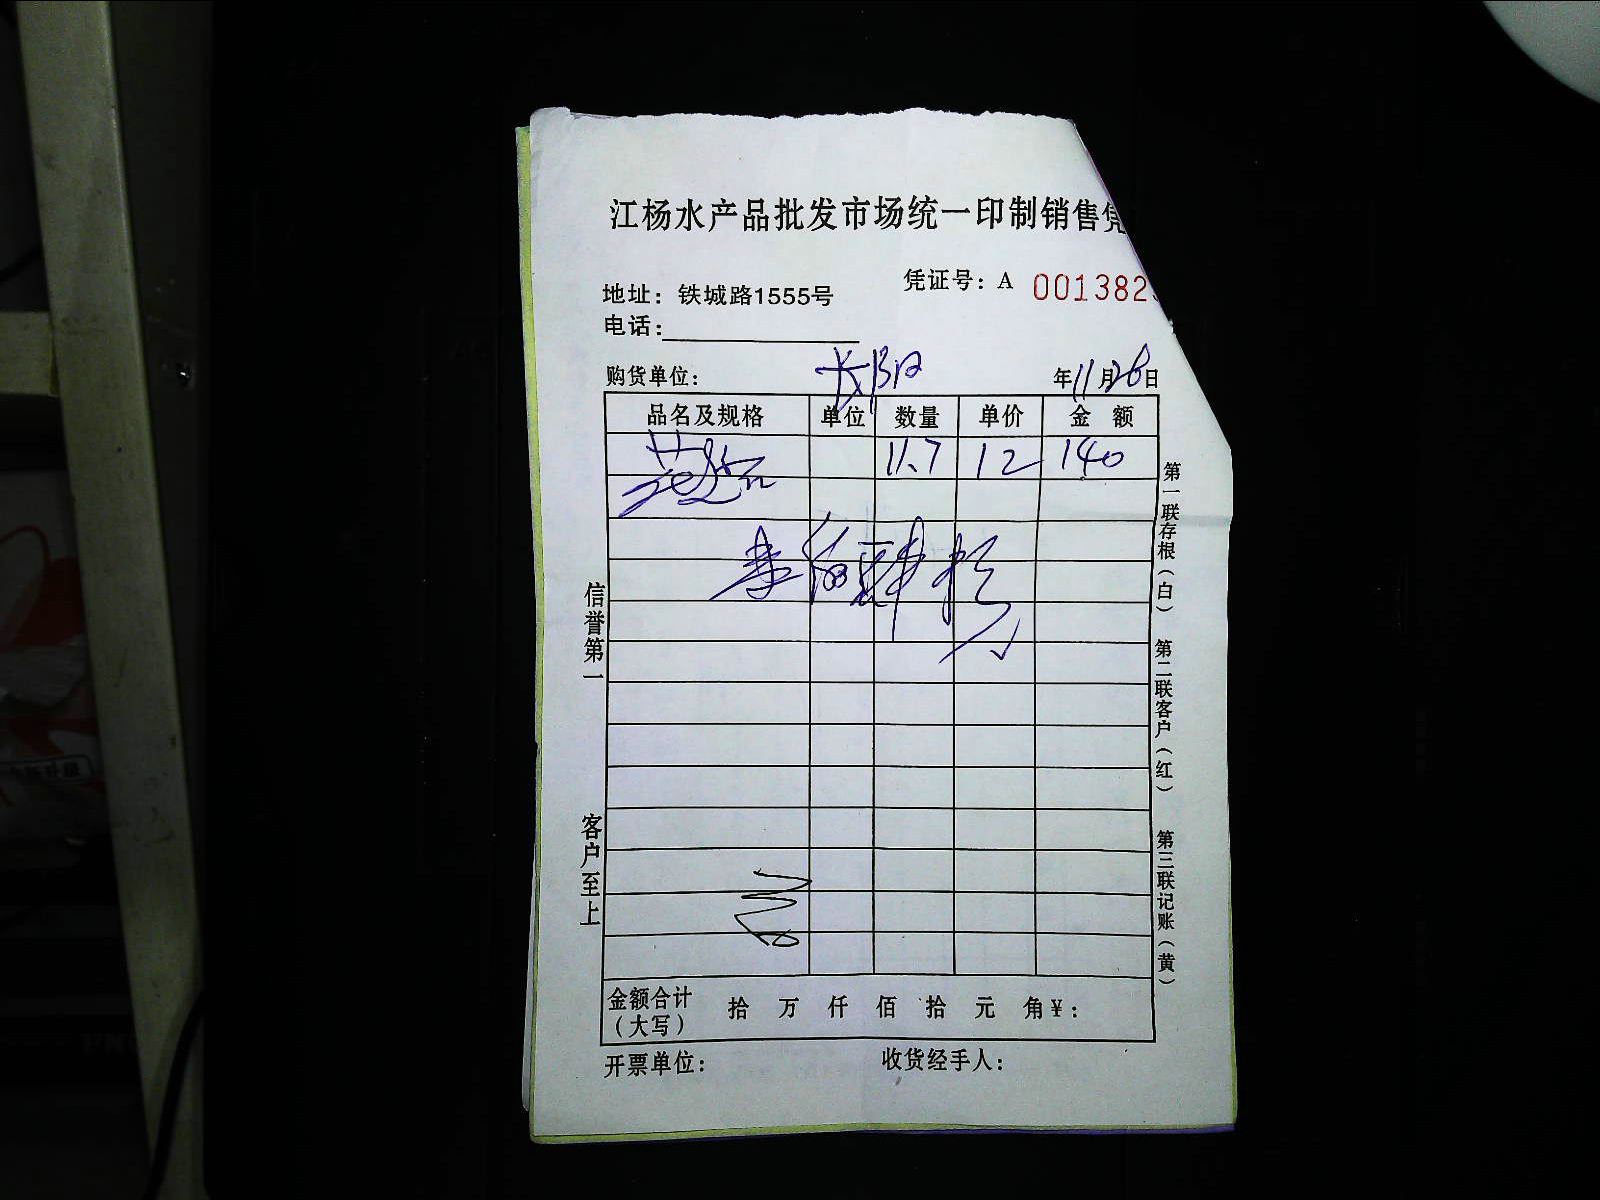 江杨水产品批发市场统一印制销售凭
凭证号：A 001382
地址：铁城路1555号
电话：
购货单位：长阳 年11月28日
品名及规格 单位 数量 单价 金额
11.7 12 140
壹佰肆拾
信誉第一
客户至上
第一联存根（白）
第二联客户（红）
第三联记账（黄）
金额合计（大写） 拾 万 仟 佰 拾 元 角￥：
开票单位： 收货经手人：